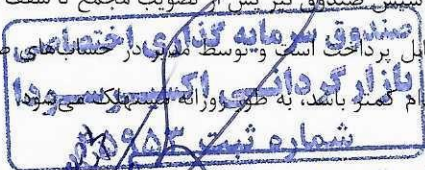 سیس صندوق نیز پس از تصویب مجمع تا سقف
صندوق سرمایه گذاری اختصاصی
ابل پرداخت است و توسط مدیر در حساب‌های
بازارگردانی اکسیر سودا
ام کمتر باشد، به طور روزانه مستهلک می‌شود
شماره ثبت ۳۵۹۵۳